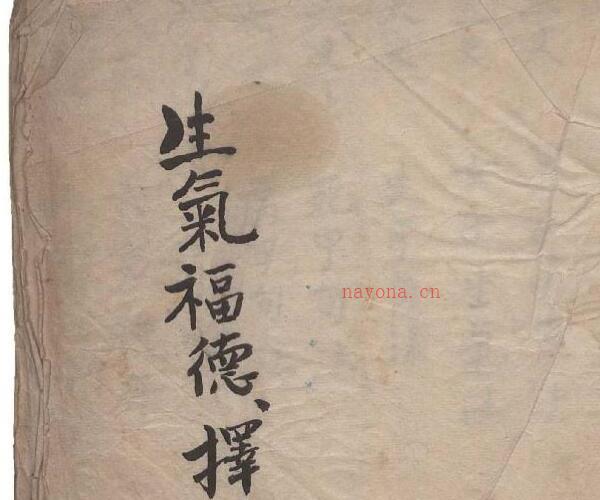 生氣福德、擇
nayona.cn